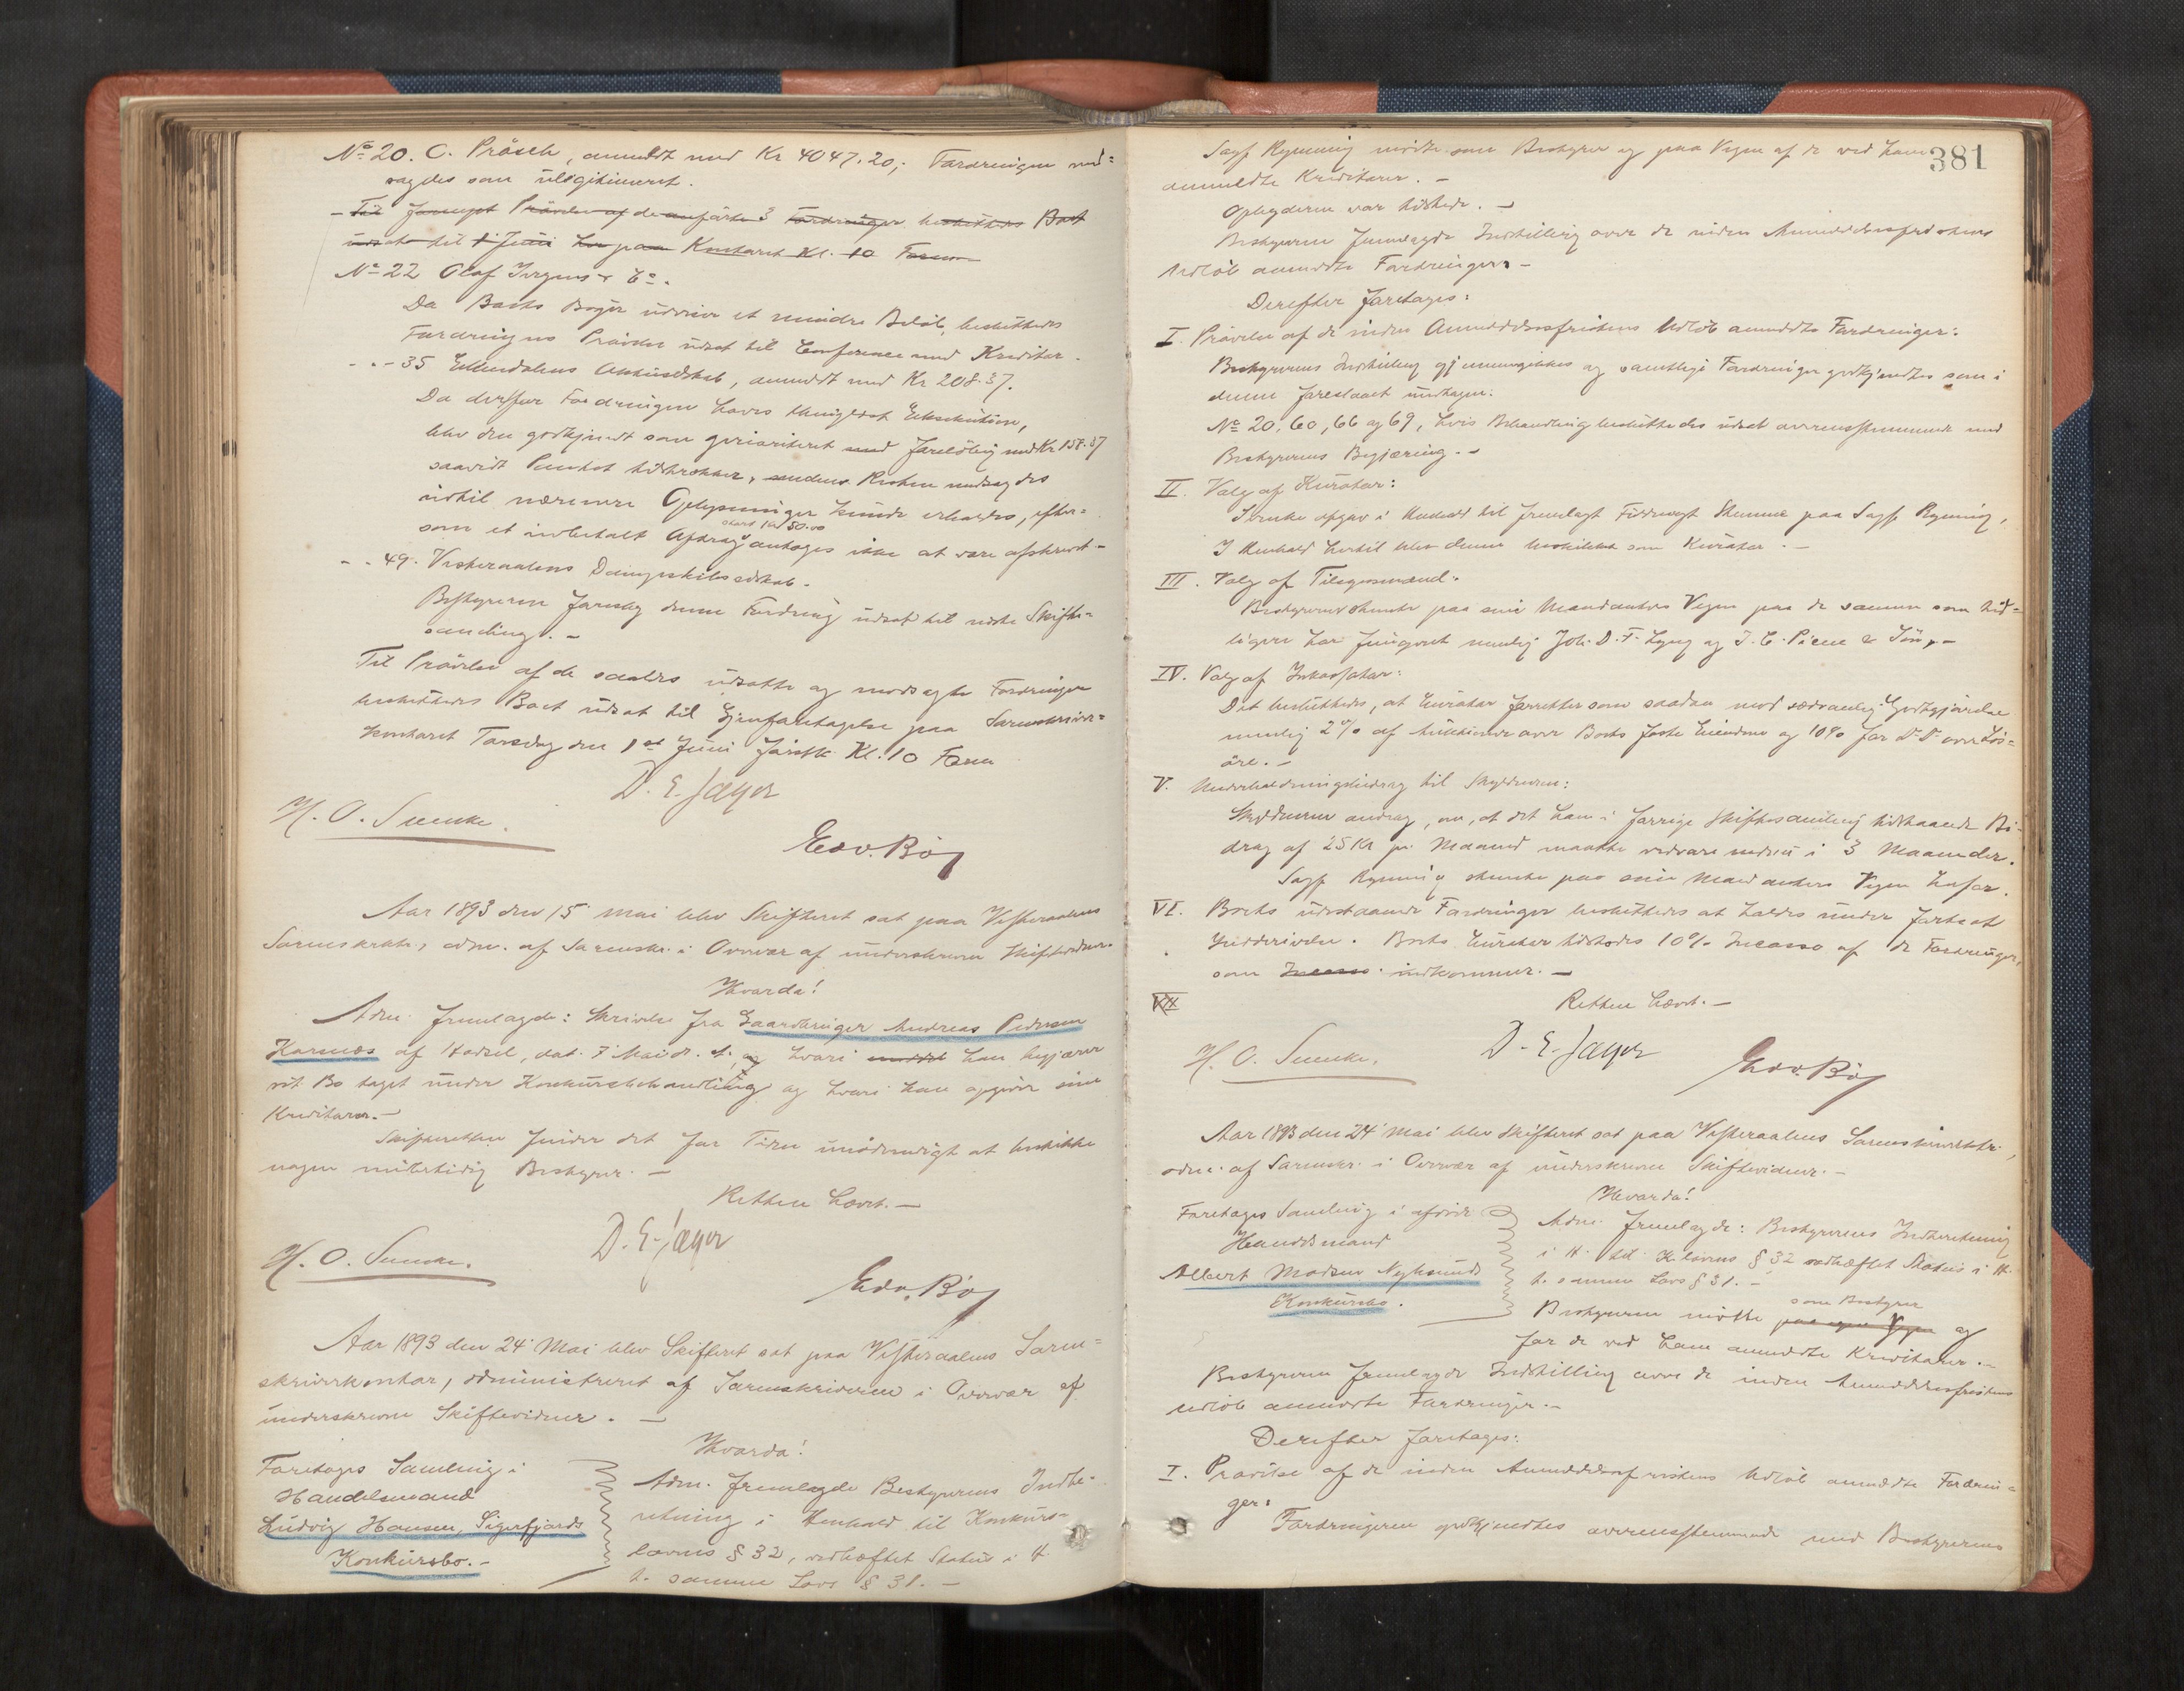 No 20. C. Präsch, anmeldt med Kr 4047.20,; Fordringen mod=
sagdes som ulegitimeret.
- Til Forsøgt Prøvelse af de anførte 3 Fordringer besluttedes Boet
udsat til 1 Juni hos paa Kontoret Kl. 10 Form
No 22 Olaf Irgens & Co.
Da Boets Bøger udviser et mindre Beløb, besluttedes
Fordringens Prøvelse udsat til Conferance med Kreditor.
- " - 35 Ellendalens Uskiftedskab, anmeldt med Kr 208.37.
Da derfor Fordringen haves thinglæst Eksekution,
blev den godkjendt som prioriteret med foreløbig med Kr 158.37
saavidt Pantet tilstrækker, medens Resten modsagdes
indtil nærmere Oplysninger kunde erholdes, efter=
som et indbetalt Afdrag stort Kr 50.00 antages ikke at være afskrevet. -
- " 49. Vesteraalens Dampskibsselskab.
Bestyreren foreslog denne Fordring udsat til næste Skifte=
samling. -
Til Prøvelse af de saaledes udsatte og modsagte Fordringer
besluttedes Boet udsat til Gjenforetagelse paa Sorenskriver=
kontoret Torsdag den 1st Juni førstk. Kl. 10 Form
D. E. Jæger
H. O. Suenke.
Edv. Bøy
Aar 1893 den 15 Mai blev Skifteret sat paa Vesteraalens
Sorenskrktr., adm. af Sorenskr. i Overvær af underskrevne Skiftevidner.
Hvorda!
Adm. fremlagde: Skrivelse fra Gaardbruger Andreas Pedersen
Kornæs af Hadsel, dat. 7 Mai d. A., og hvori han begjærer
sit Bo taget under Konkursbehandling og hvori han opgiver sine
Kreditorer. -
Skifteretten finder det for Tiden unødvendigt at beskikke
nogen midlertidig Bestyrer. -
Retten hævet. -
D. E. Jæger
H. O. Suenke.
Edv. Bøy
Aar 1893 den 24 Mai blev Skifteret sat paa Vesteraalens Soren=
skriverkontor, administreret af Sorenskriveren i Overvær af
underskrevne Skiftevidner. -
Hvorda!
Foretages Samling i
Handelsmand
Ludvig Hansen, Sigerfjords
Konkursbo. -
Adm. fremlagde Bestyrerens Indbe-
retning i Henhold til Konkurs-
lovens § 32, vedhæftet Status i H.
t. samme Lovs § 31. -
381
Sagf. Rynning mødte som Bestyrer og paa Vegne af de ved ham
anmeldte Kreditorer. -
Opbyderen var tilstede. -
Bestyreren fremlagde Indstilling over de inden Anmeldelsesfristens
Udløb anmeldte Fordringer. -
Derefter foretages:
I. Prøvelse af de inden Anmeldelsesfristens Udløb anmeldte Fordringer:
Bestyrerens Indstilling gjennemgikkes og samtlige Fordringer godkjendtes som i
denne foreslaaet undtagen:
No 20, 60, 66 og 69, hvis Behandling besluttedes udsat overensstemmende med
Bestyrerens Begjæring. -
II. Valg af Kurator:
Suenke afgav i Henhold til fremlagt Fuldmagt Stemme paa Sagf. Rynning,
I Henhold hertil blev denne beskikket som Kurator. -
III. Valg af Tilsynsmænd:
Bestyreren stemte paa sine Mandanters Vegne paa de samme som tid=
ligere har fungeret nemlig Joh. D. F. Lyng og J. C. Piene & Søn. -
IV. Valg af Inkassator:
Det besluttedes, at Kurator forretter som saadan mod sædvanlig Godtgjørelse
nemlig 2% af Auktioner over Boets faste Eiendom og 10% for Do Do over Løs=
øre. -
V. Underholdningsbidrag til Skyldneren:
Skyldneren androg, om, at det ham i forrige Skiftesamling tilstaaede Bi-
drag af 25 Kr pr. Maaned maatte vedvare endnu i 3 Maaneder.
Sagf. Rynning stemte paa sine Mandanters Vegne herfor.
VI. Boets udestaaende Fordringer besluttedes at holdes under fortsat
Inddrivelse. Boets Kurator tilstodes 10% Incasso af de Fordringer,
som Incasso indkommer. -
Retten hævet. -
D. E. Jæger
H. O. Suenke.
Edv. Bøy
Aar 1893 den 24 Mai blev Skifteret sat paa Vesteraalens Sorenskriverktr.,
adm. af Sorenskr. i Overvær af underskrevne Skiftevidner. -
Hvorda!
Foretages Samling i afdøde
Handelsmand
Albert Madsen Nyksunds
Konkursbo.
Adm. fremlagde: Bestyrerens Indberetning
i H. til K. lovens § 32 vedhæftet Status i H.
t. samme Lovs § 31. -
Bestyreren mødte paa egne Vegne som Bestyrer og
for de ved ham anmeldte Kreditorer. -
Bestyreren fremlagde Indstilling over de inden Anmeldelsesfristens
Udløb anmeldte Fordringer. -
Derefter foretages:
I. Prøvelse af de inden Anmeldelsesfristens Udløb anmeldte Fordrin=
ger:
Fordringerne godkjendtes overensstemmende med Bestyrerens